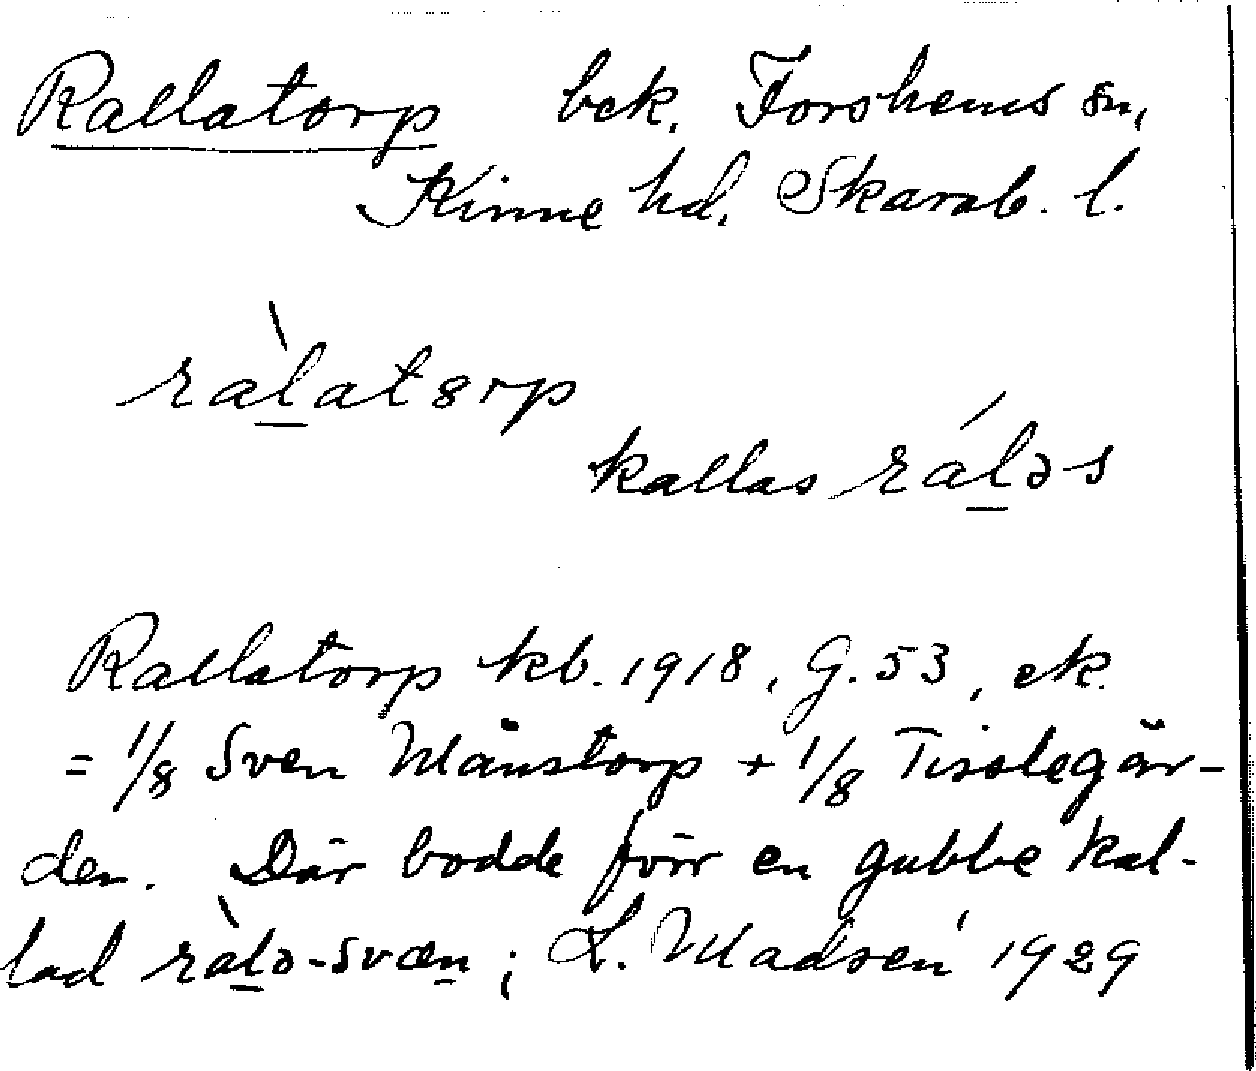 Rallatorp bek. Forshems sn,
Kinne hd. Skarab. l.
ràl̲at8rp
kallas rál̲əs
Rallatorp kb. 1918, G. 53, ek.
= 1/8 Sven Månstorp + 1/8 Tisslegår-
den. Där bodde förr en gubbe kal-
lad ràl̲ə-svæn̲; L. Madsén 1929